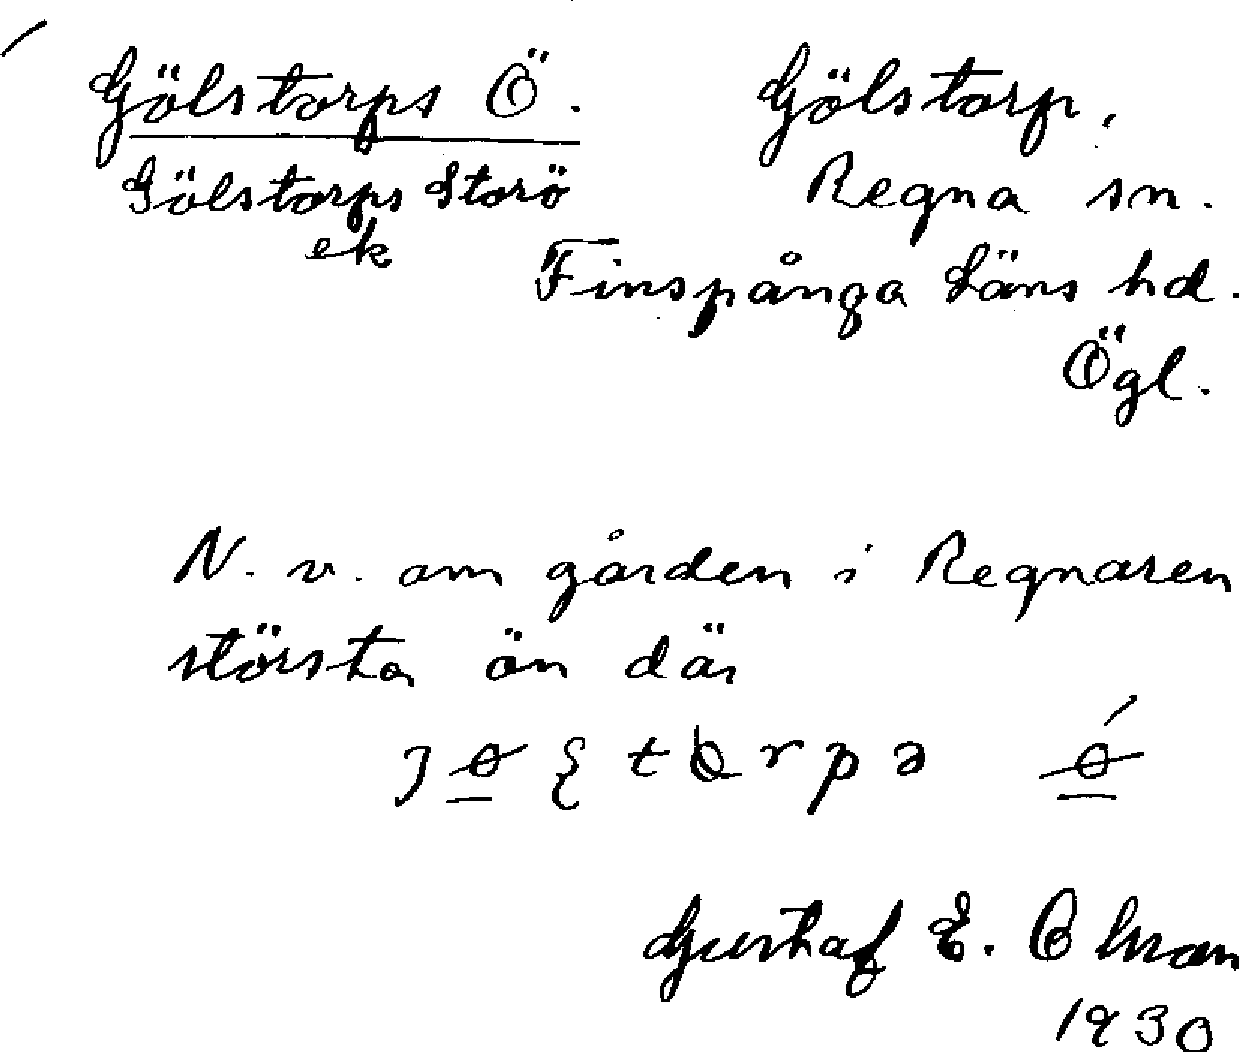 Gölstorps Ö. Gölstorp,
Gölstorps Storö Regna sn.
ek Finspånga Läns hd.
Ögl.
N. v. om gården i Regnaren
största ön där
Gustaf E. Ohman
1930